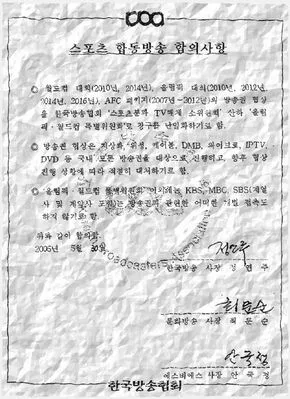 스포츠 합동방송 합의사항
월드컵 대회(2010년, 2014년), 올림픽 대회(2010년, 2012년,
2014년, 2016년), AFC 패키지(2007년~2012년)의 방송권 협상
을 한국방송협회 '스포츠분과 TV해체 소위원회' 산하 '올림
픽·월드컵 특별위원회'로 창구를 단일화하기로 함.
방송권 협상은 지상파, 위성, 케이블, DMB, 와이브로, IPTV,
DVD 등 국내 모든 방송권을 대상으로 진행하고, 향후 협상
진행 상황에 따라 적절히 대처하기로 함.
올림픽·월드컵 특별위원회 이외에는 KBS, MBC, SBS(계열
사 및 계열사 포함)는 방송권과 관련한 어떠한 개별 접촉도
하지 않기로 함.
위와 같이 합의함.
2006년 5월 30일
한국방송 사장 정 연 주
문화방송 사장 최 문 순
에스비에스 사장 안 국 정
한국방송협회